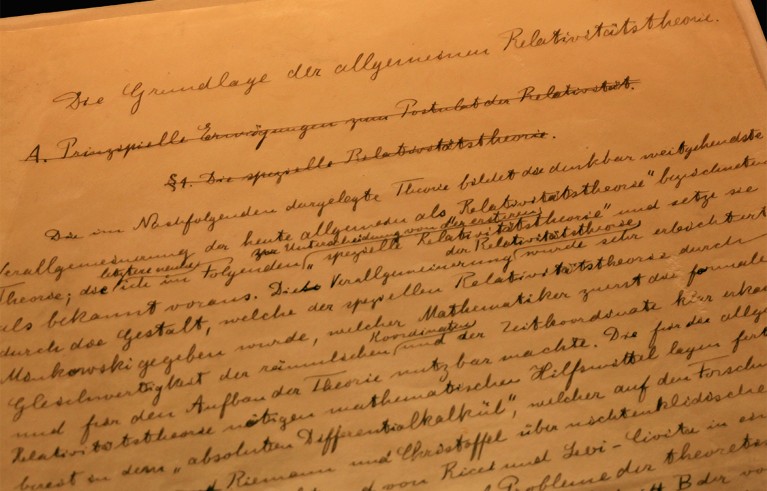 Die Grundlage der allgemeinen Relativitätstheorie.
A. Prinzipielle Erwägungen zum Postulat der Relativität.
§1. Die spezielle Relativitätstheorie.
Die im Nachfolgenden dargelegte Theorie bildet die denkbar weitgehendste
Verallgemeinerung der heute allgemein als „Relativitätstheorie" bezeichneten
letztere nenne zur Unterscheidung von der ersteren
Theorie; die ich im Folgenden „spezielle Relativitätstheorie" und setze sie
der Relativitätstheorie
als bekannt voraus. Die Verallgemeinerung wurde sehr erleichtert
durch die Gestalt, welche der speziellen Relativitätstheorie durch
Minkowski gegeben wurde, welcher Mathematiker zuerst die formale
Koordinaten
Gleichwertigkeit der räumlichen und der Zeitkoordinate klar erkan
und für den Aufbau der Theorie nutzbar machte. Die für die allge
Relativitätstheorie nötigen mathematischen Hilfsmittel lagen fert
bereit in dem „absoluten Differentialkalkül", welcher auf den Forschu
Riemann und Christoffel über nichteuklidische
von Ricci und Levi-Civita in ein
Probleme der theoret
B der vo